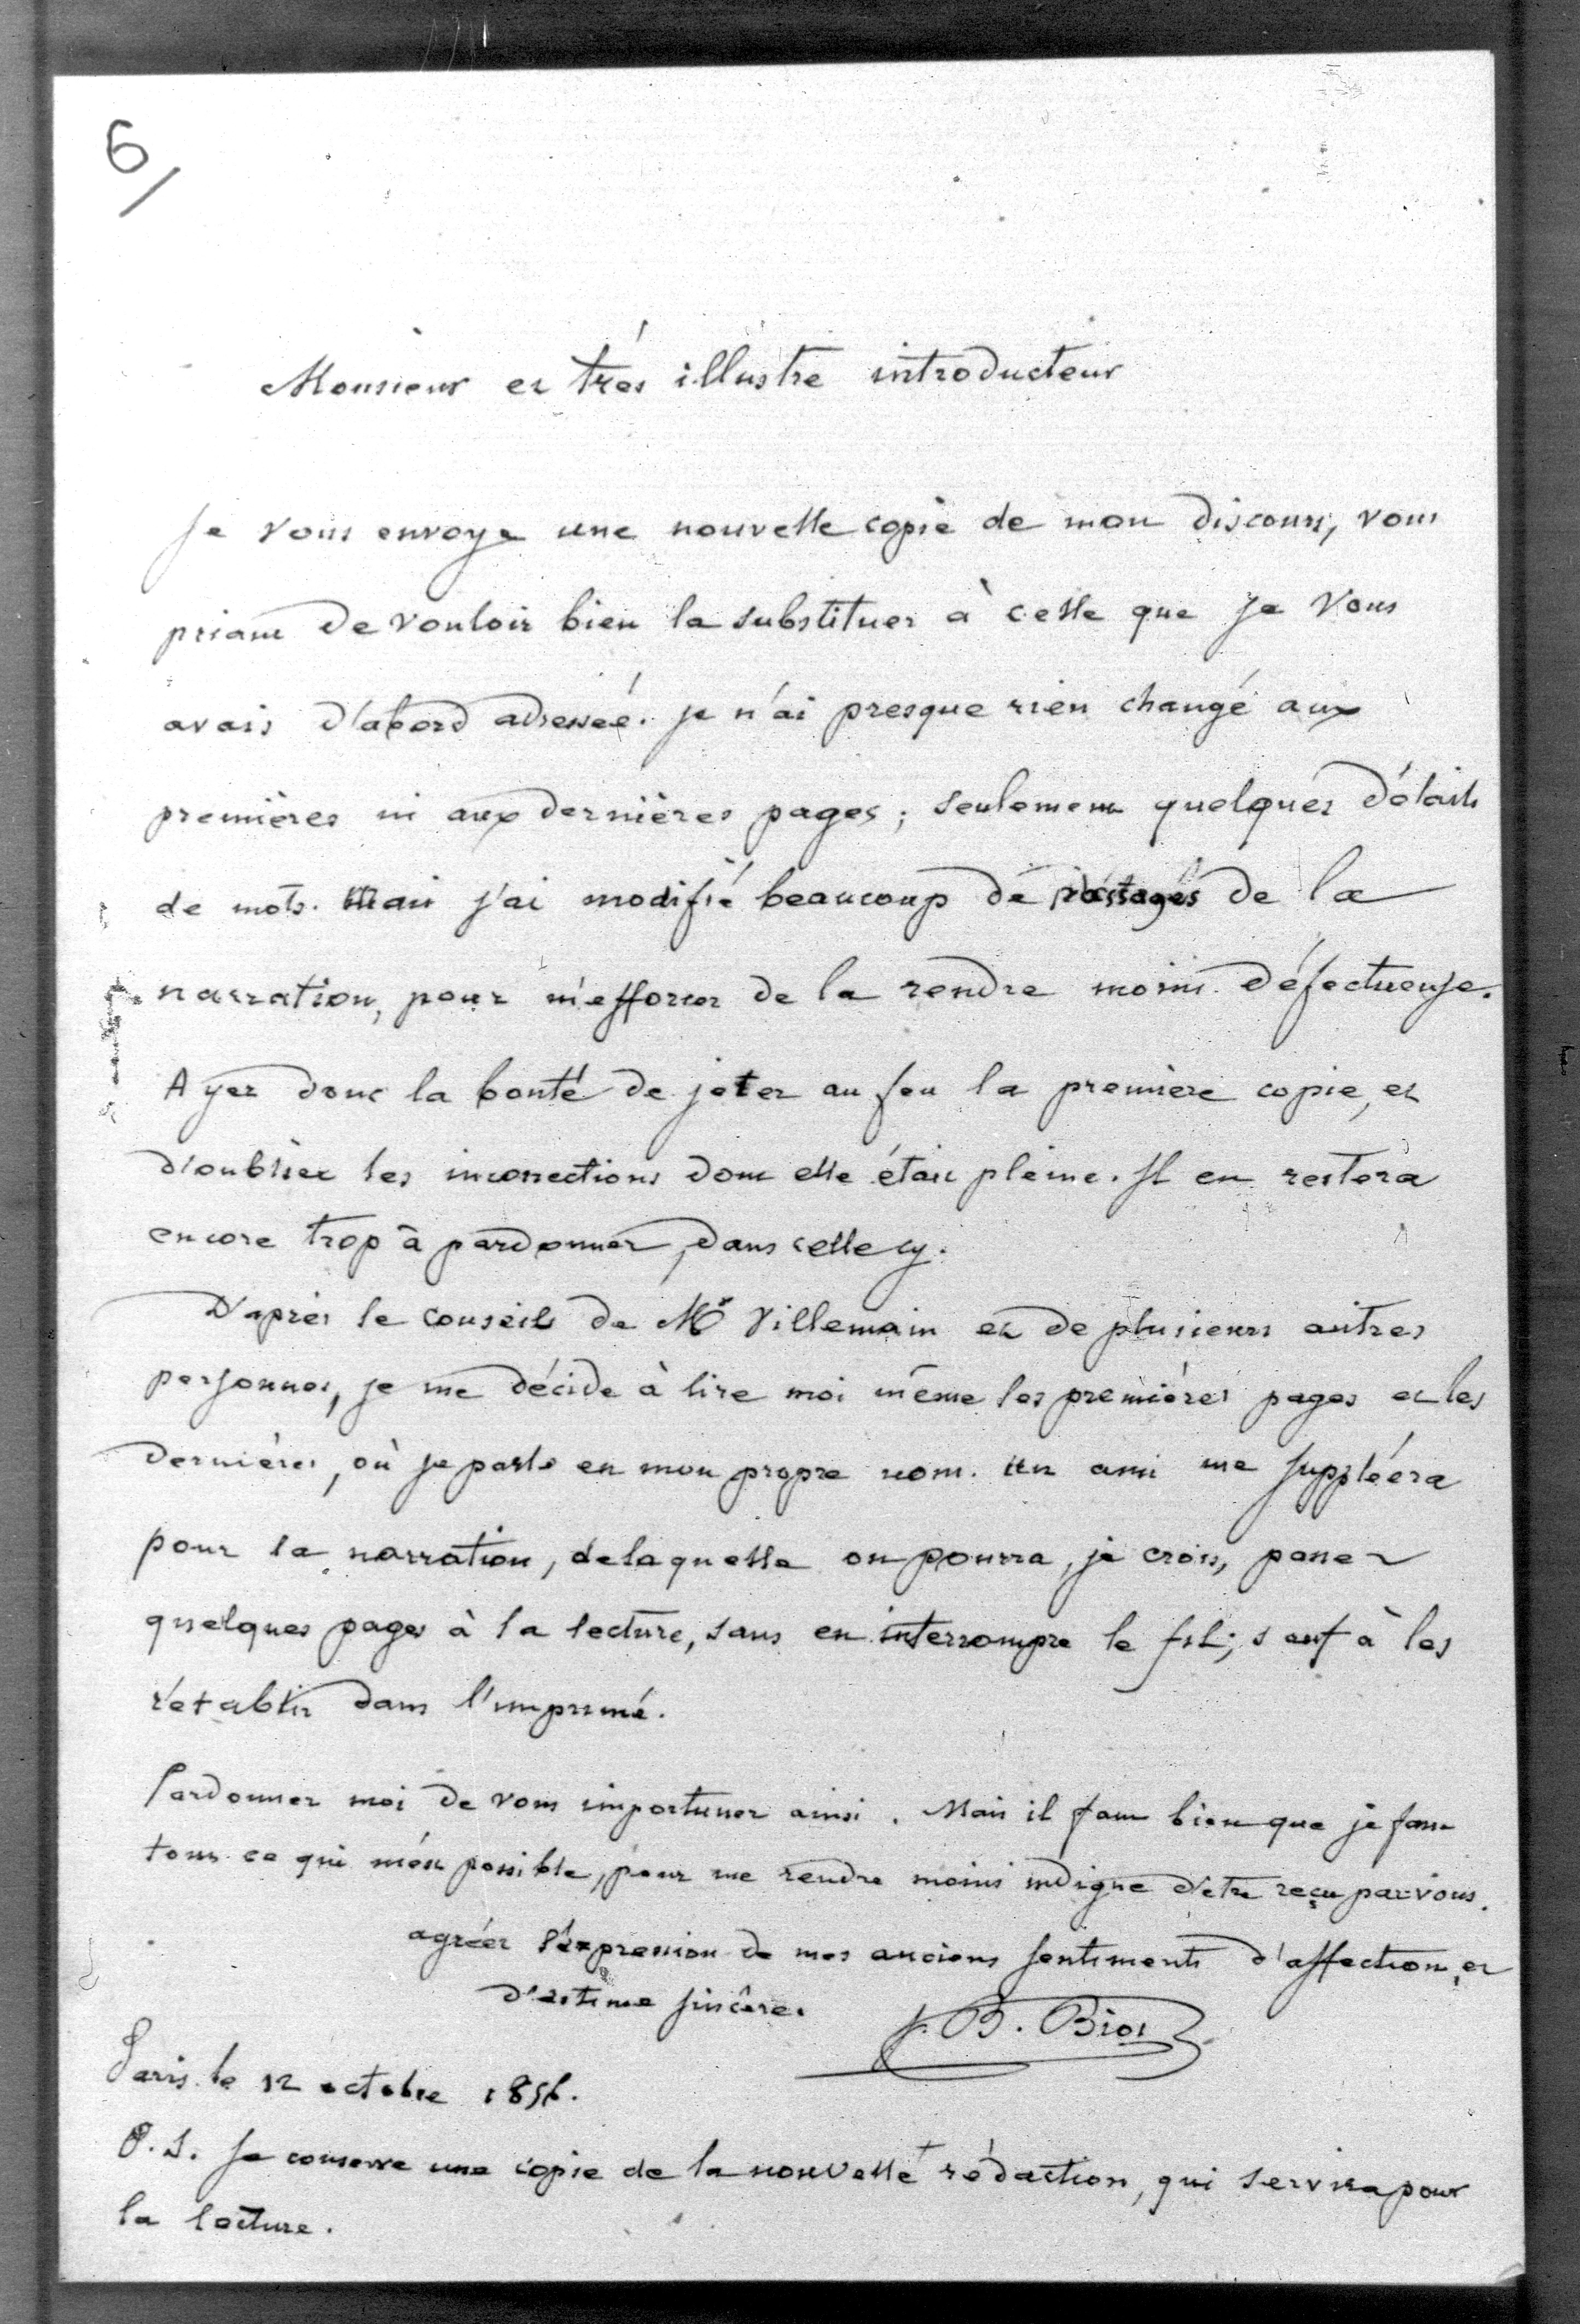 6/
Monsieur et très illustre introducteur
Je vous envoye une nouvelle copie de mon discours, vous
priant de vouloir bien la substituer à celle que je vous
avais d'abord adressée. je n'ai presque rien changé aux
premières ni aux dernières pages; seulement quelques détails
de mots. Mais j'ai modifié beaucoup de passages de la
narration, pour m'efforcer de la rendre moins défectueuse.
Ayez donc la bonté de jeter au feu la première copie, et
d'oublier les incorrections dont elle était pleine. Il en restera
encore trop à pardonner, dans celle cy.
D'après le conseils de Mr Villemain et de plusieurs autres
personnes, je me décide à lire moi même les premières pages et les
dernières, où je parle en mon propre nom. un ami me suppléera
pour la narration, de laquelle on pourra, je crois, passer
quelques pages à la lecture, sans en interrompre le fil; sauf à les
rétablir dans l'imprimé.
Pardonnez moi de vous importuner ainsi. Mais il faut bien que je fasse
tout ce qui m'est possible, pour me rendre moins indigne d'etre reçu par vous.
agréez l'expression de mes anciens sentiments d'affection, et
d'estime sincère.
J. B. Biot
Paris le 12 octobre 1856.
P. S. Je conserve une copie de la nouvelle rédaction, qui servira pour
la lecture.